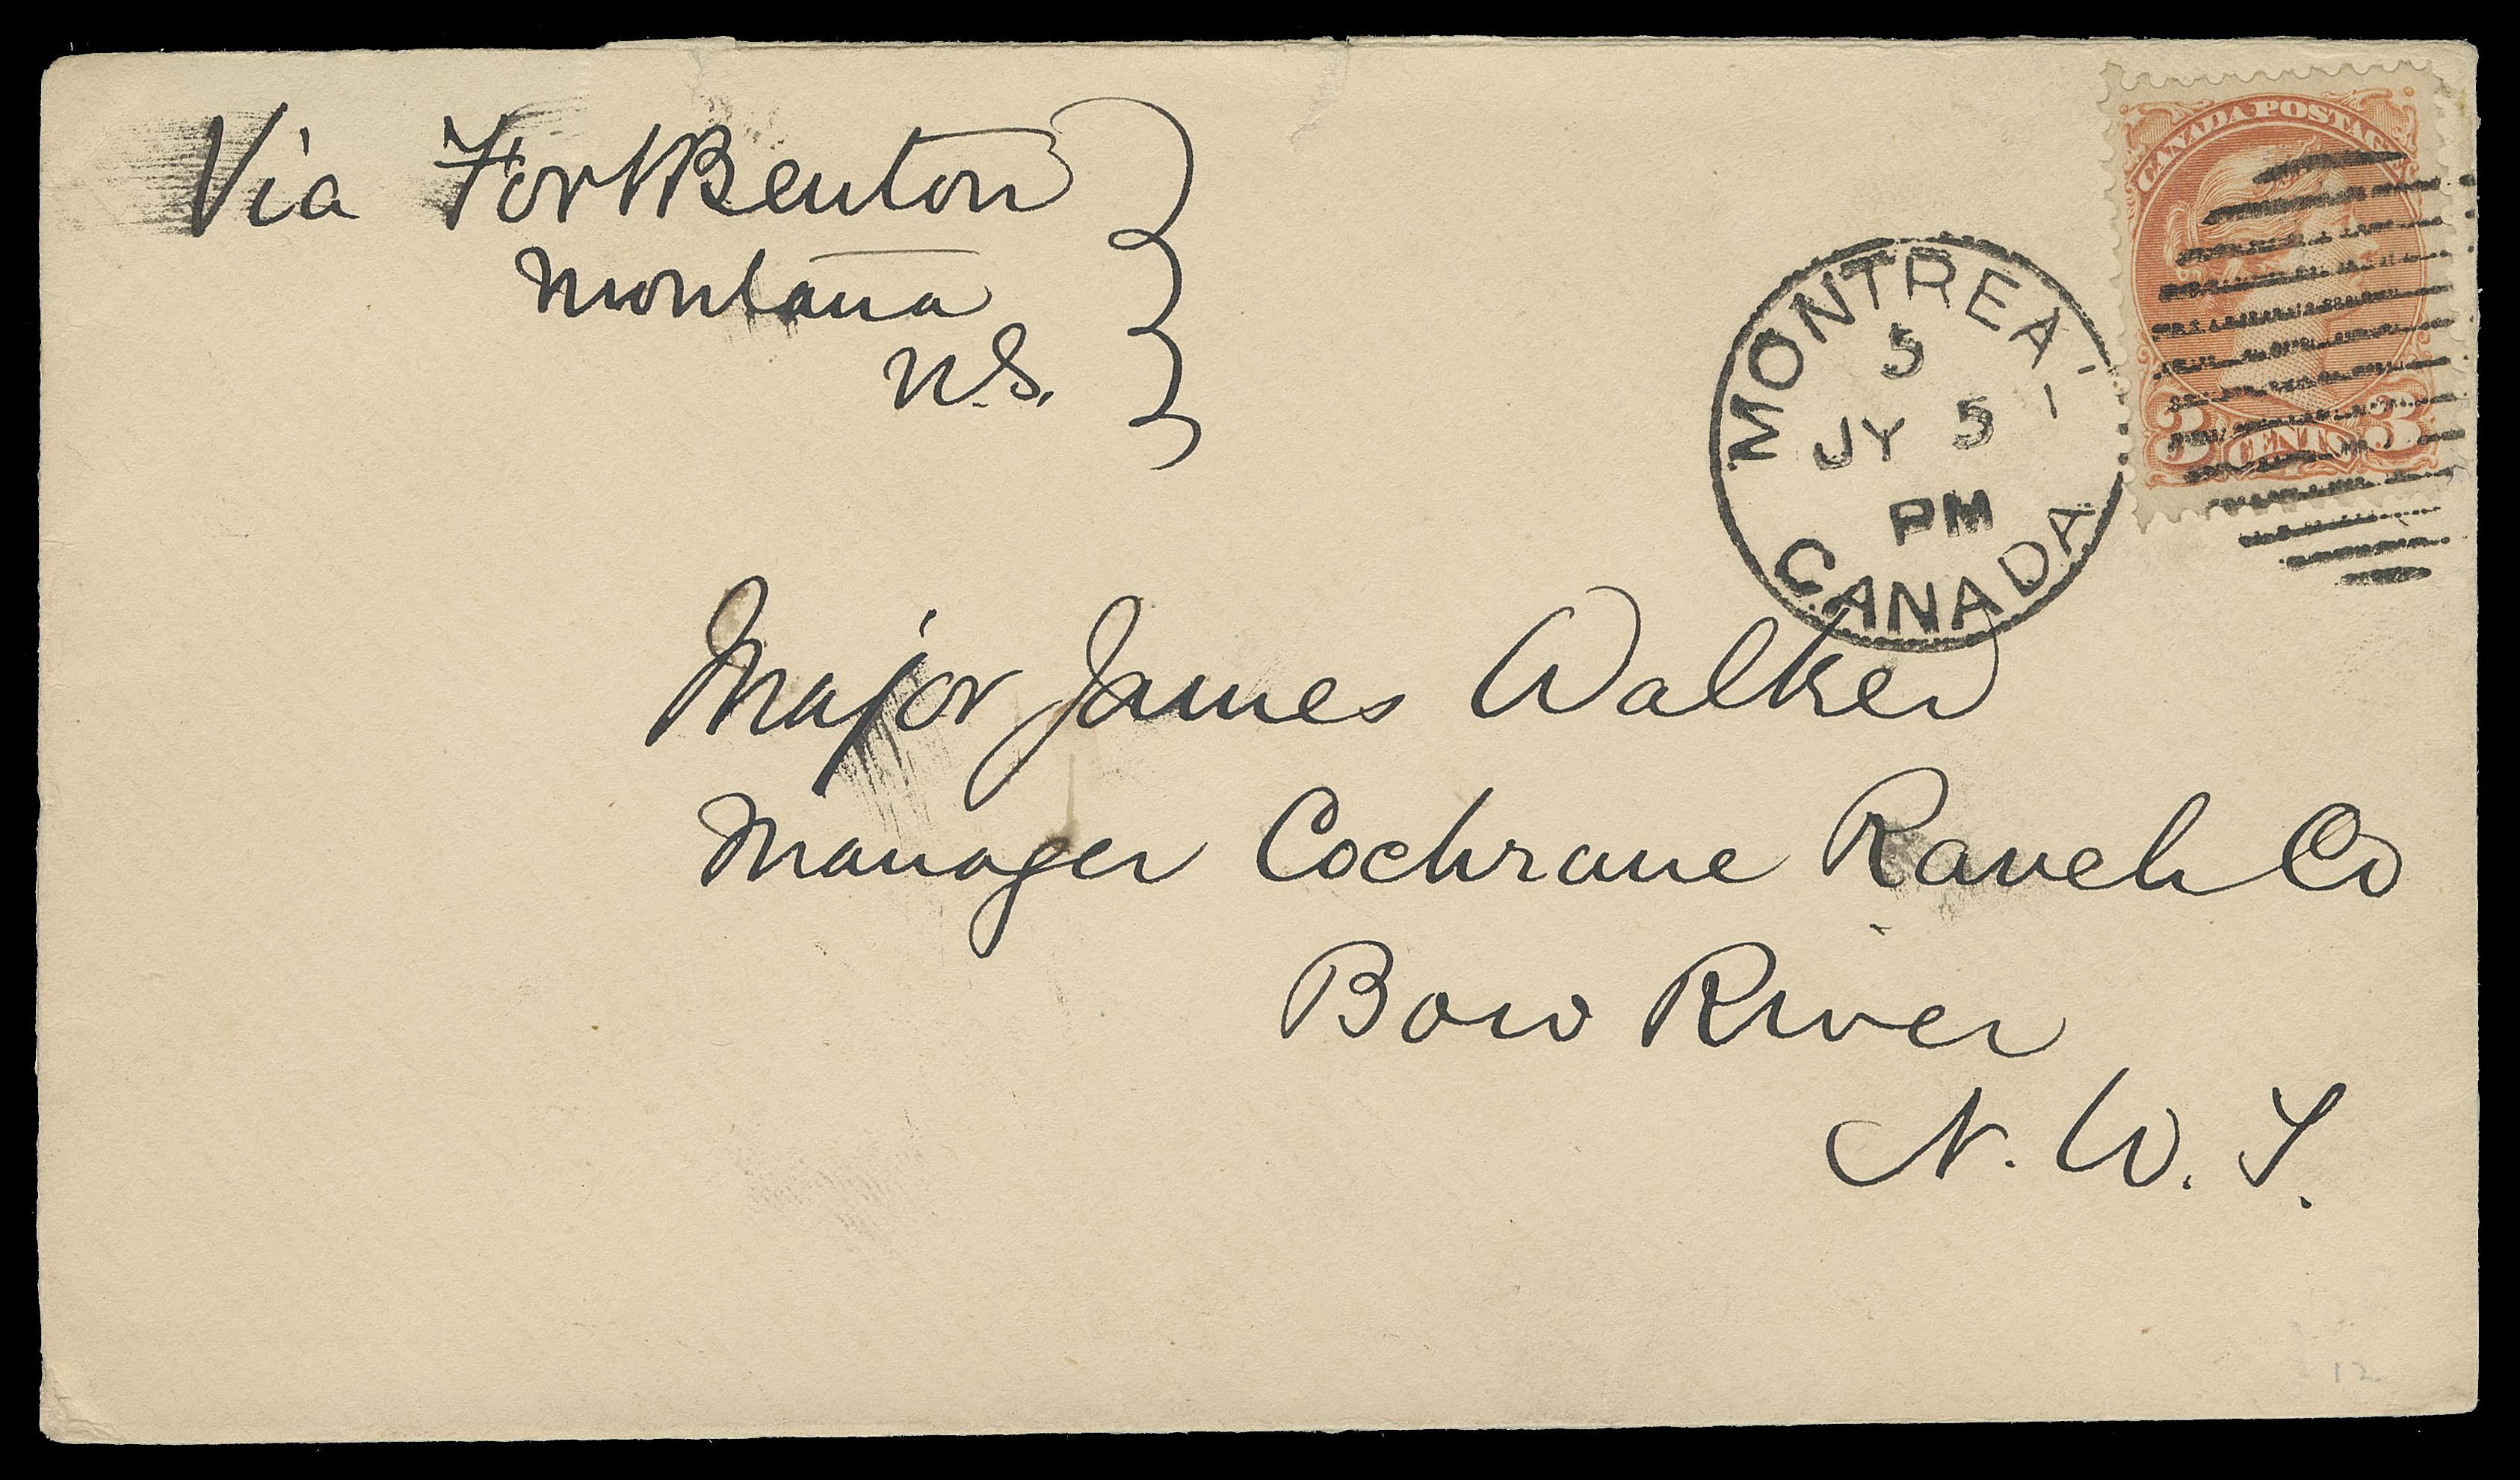 Via Fort Benton
Montana
U.S.
CANADA POSTAGE
3 CENTS 3
MONTREAL
5
JY 5
PM
CANADA
Major James Walker
Manager Cochrane Ranch Co
Bow River
N.W.T.
12